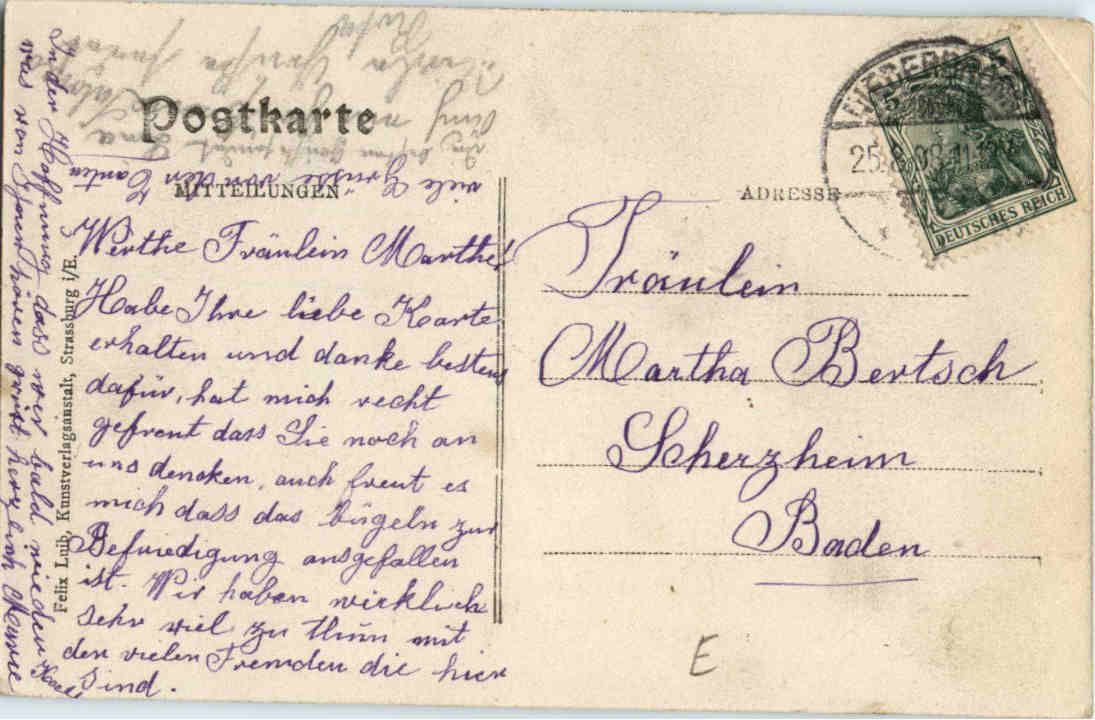 Postkarte
MITTEILUNGEN
ADRESSE
DEUTSCHES REICH
viele Grüsse von den Tanten
Werthe Fräulein Martha!
Habe Ihre liebe Karte
erhalten und danke bestens
dafür, hat mich recht
gefreut dass Sie noch an
uns dencken, auch freut es
mich dass das bügeln zur
Befriedigung ausgefallen
ist. Wir haben wirklich
sehr viel zu thun mit
den vielen Fremden die hier
sind.
In der Hoffnung dass wir bald wieder
was von Ihnen hören grüsst herzlich Marie
Felix Luib, Kunstverlagsanstalt, Strassburg i/E.
Fräulein
Martha Bertsch
Scherzheim
Baden
E